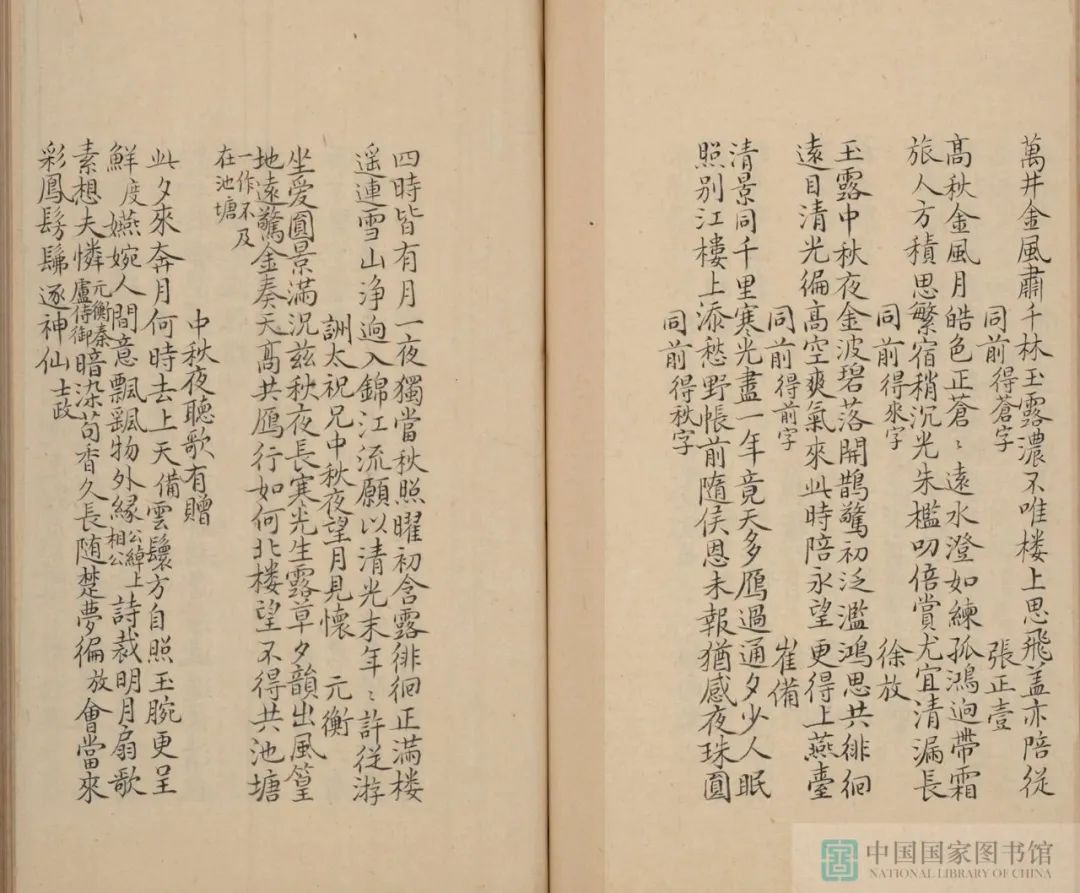 萬井金風肅千林玉露濃不唯楼上思飛盖亦陪従
同前得蒼字 張正壹
高秋金風月皓色正蒼〻遠水澄如練孤鴻迥帶霜
旅人方積思繁宿稍沉光朱檻叨倍賞尤宜清漏長
同前得来字 徐放
玉露中秋夜金波碧落開鵲驚初泛濫鴻思共徘徊
遠目清光徧高空爽氣來此時陪永望更得上燕臺
同前得前字 崔備
清景同千里寒光盡一年竟天多鴈過通夕少人眠
照别江樓上添愁野帳前隨侯恩未報猶感夜珠圓
同前得秋字
四時皆有月一夜獨當秋照曜初含露徘徊正滿楼
遥連雪山浄迥入錦江流願以清光末年〻許従游
訓太祝兄中秋夜望月見懷 元衡
坐愛圓景滿況兹秋夜長寒光生露草夕韻出風篁
地遠驚金奏天髙共鴈行如何北楼望不得共池塘
一作不及
在池塘
中秋夜聽歌有贈
此夕來奔月何時去上天備雲鬟方自照玉腕更呈
鮮度嬿婉人間意飄飄物外緣公綽上相公詩裁明月扇歌
素想夫憐元衡奏盧侍御暗染荀香久長随楚夢徧放會當來
彩鳳髣髴逐神仙士政
中国国家图书馆
NATIONAL LIBRARY OF CHINA